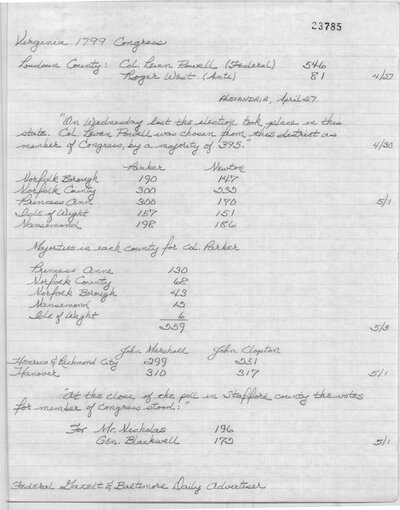 23785
Virginia 1799 Congress
Loudoun County: Col. Leven Powell (Federal) 546
Roger West (Anti) 81 4/27
ALEXANDRIA, April 27.
"On Wednesday last the election took place in this
state. Col. Leven Powell was chosen from this district as
member of Congress, by a majority of 395." 4/30
Parker Newton
Norfolk Borough 190 147
Norfolk County 300 232
Princess Ann 300 170 5/1
Isle of Wight 157 151
Nansemond 198 186
Majorties is each county for Col. Parker
Princess Anne 130
Norfolk County 68
Norfolk Borough 43
Nansemond 12
Isle of Wight 6
259 5/3
John Marshall John Clopton
Henrico & Richmond City 299 251
Hanover 310 317 5/1
"At the close of the poll in Stafford county the votes
for member of Congress stood:"
For Mr. Nicholas 196
Gen. Blackwell 172 5/1
Federal Gazett & Baltimore Daily Advertiser